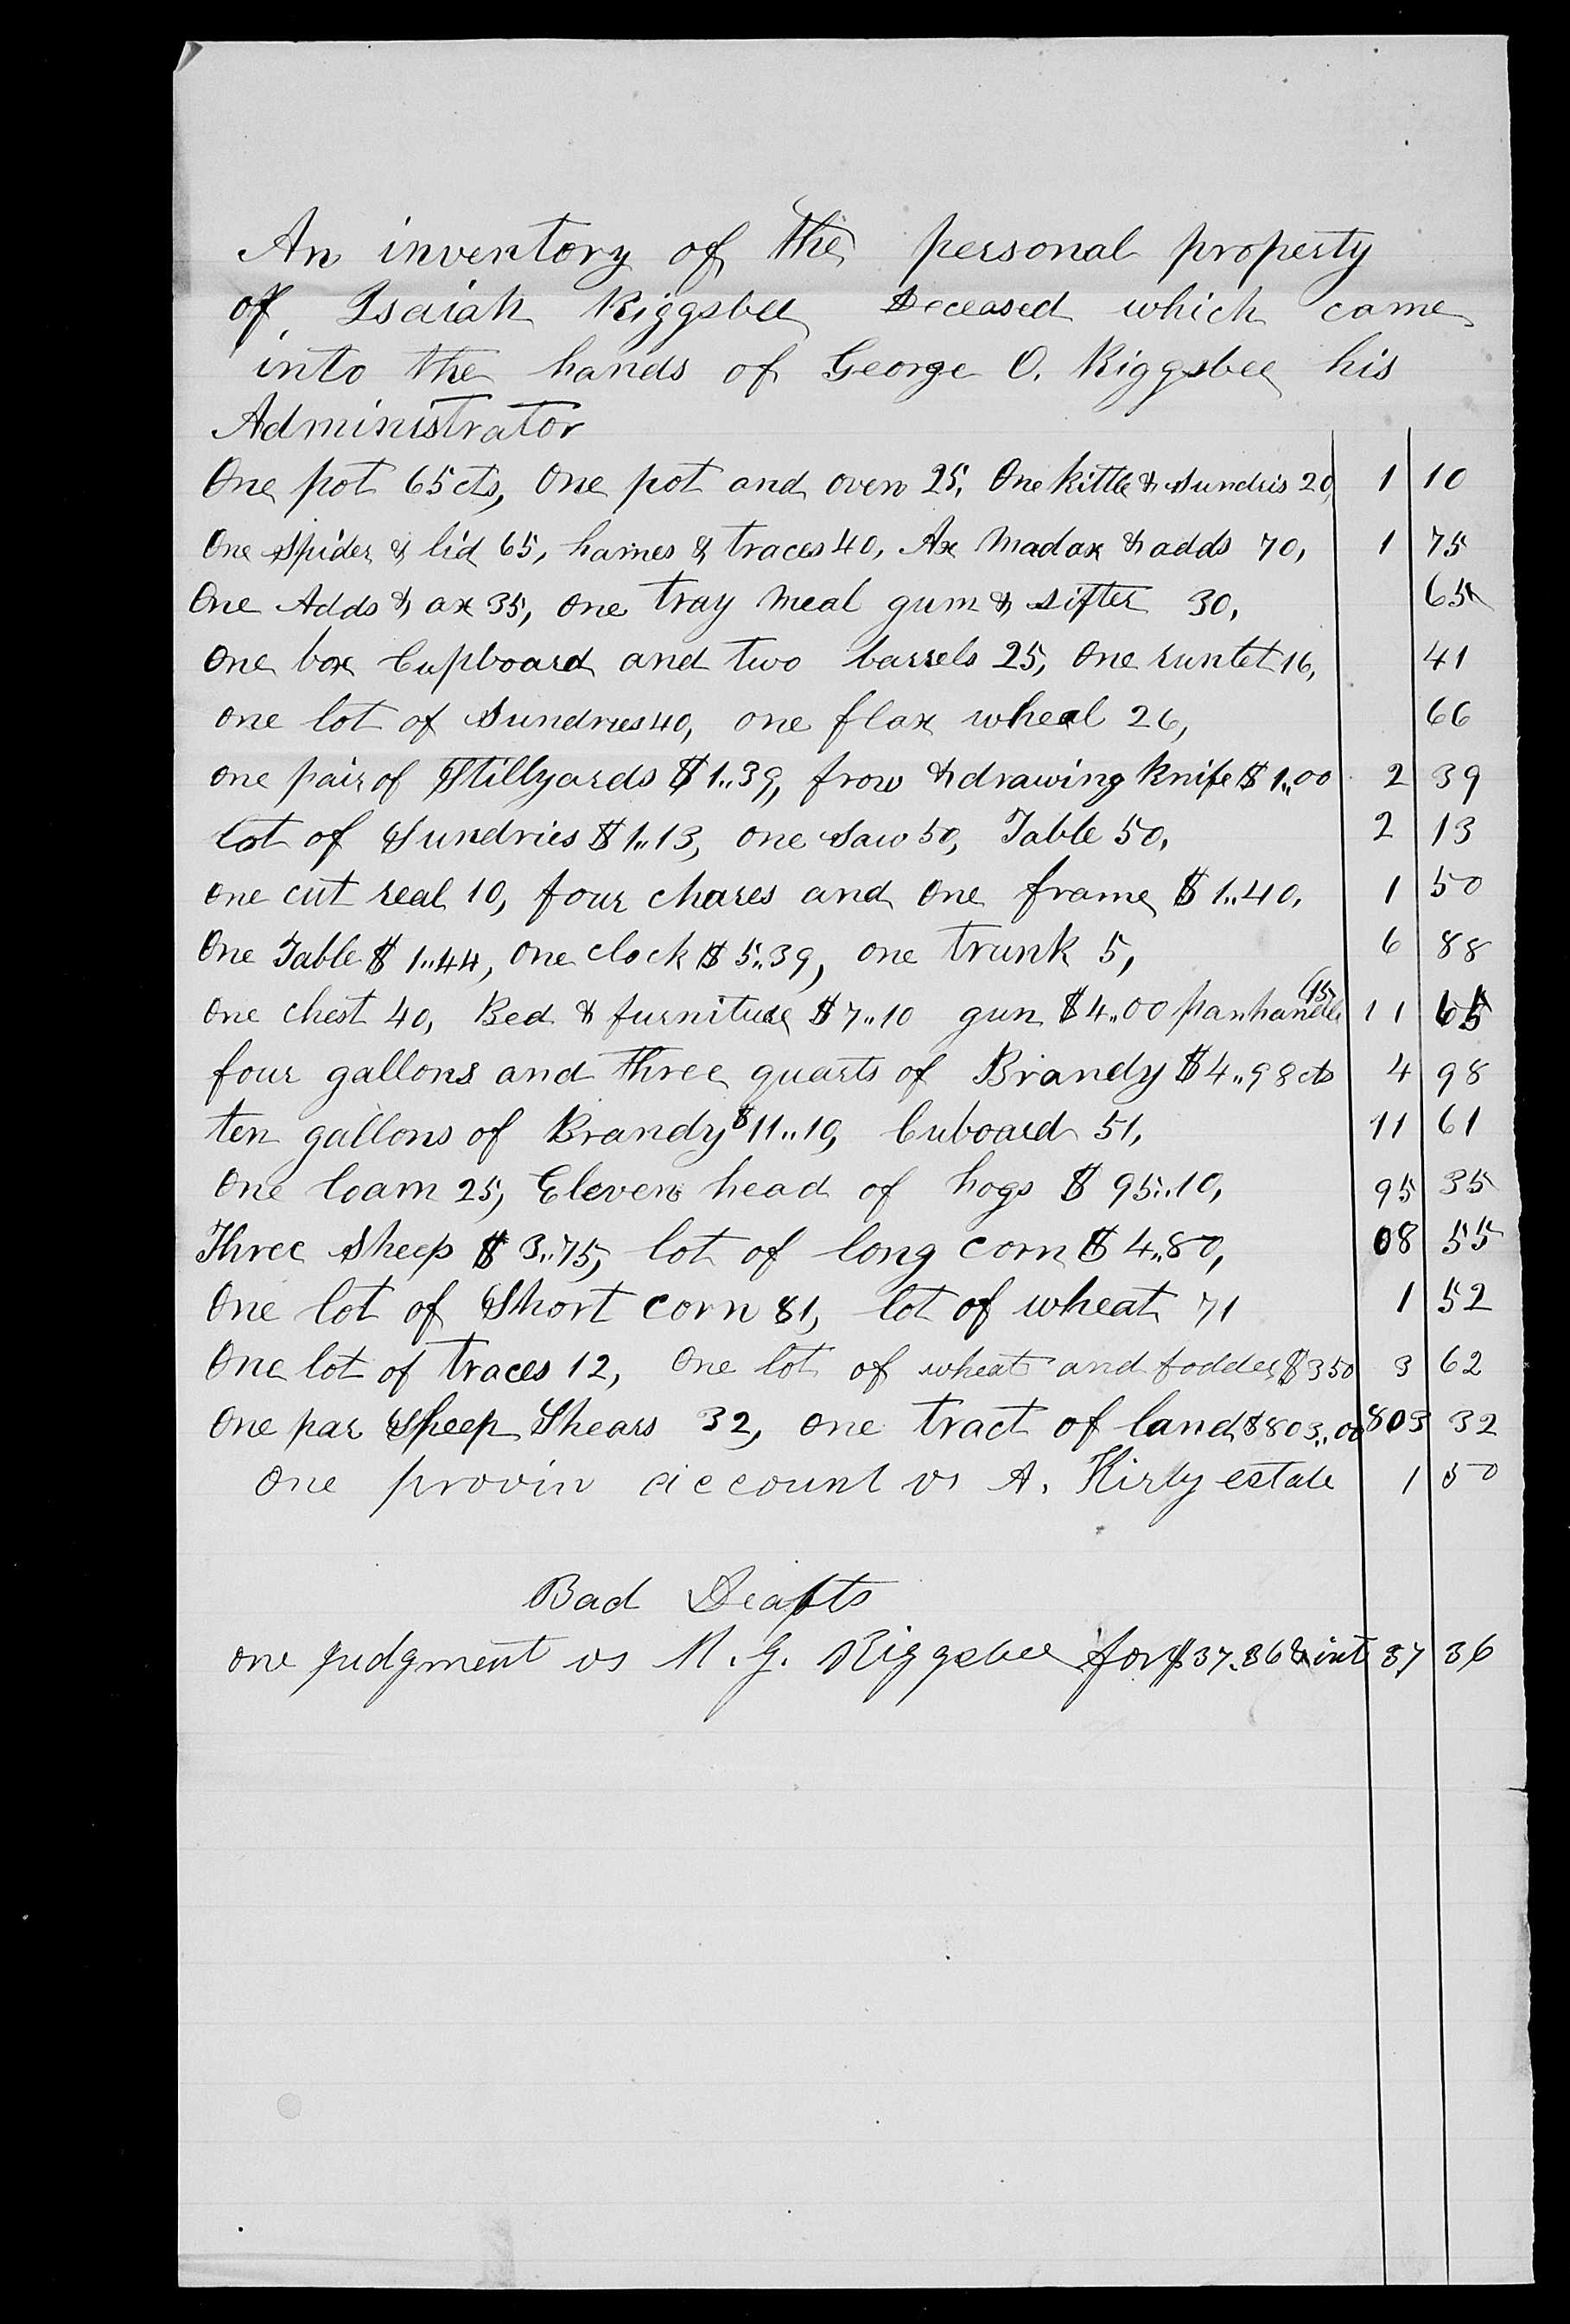 An inventory of the personal property
of Isaiah Riggsbee Deceased which came
into the hands of George O. Riggsbee his
Administrator
One pot 65 cts, One pot and oven 25, One kittle & Sundris 20, 1 10
One Spider & lid 65, hames & traces 40, Ax Madax & adds 70, 1 75
One Adds & ax 35, one tray meal gum & sifter 30, 65
One box Cupboard and two barrels 25, One runlet 16, 41
one lot of Sundries 40, one flax wheal 26, 66
one pair of Stillyards $1..39, frow & drawing knife $1..00 2 39
lot of Sundries $1..13, one Saw 50, Table 50, 2 13
one cut real 10, four chares and one frame $1..40, 1 50
One Table $1..44, one clock $5..39, one trunk 5, 6 88
One chest 40, Bed & furniture $7..10 gun $4..00 panhandle 15 11 65
four gallons and three quarts of Brandy $4..98 cts 4 98
ten gallons of Brandy $11..10, Cuboard 51, 11 61
One loam 25, Eleven head of hogs $95..10, 95 35
Three Sheep $3..75, lot of long corn $4..80, 08 55
One lot of Short corn 81, lot of wheat 71 1 52
One lot of traces 12, One lot of wheat and fodder $3 50 3 62
One par Sheep Shears 32, one tract of land $803..00 803 32
One provin account vs A. Kirby estate 1 50
Bad Deapts
one judgment vs M. G. Riggsbee for $37.36 & int 37 36